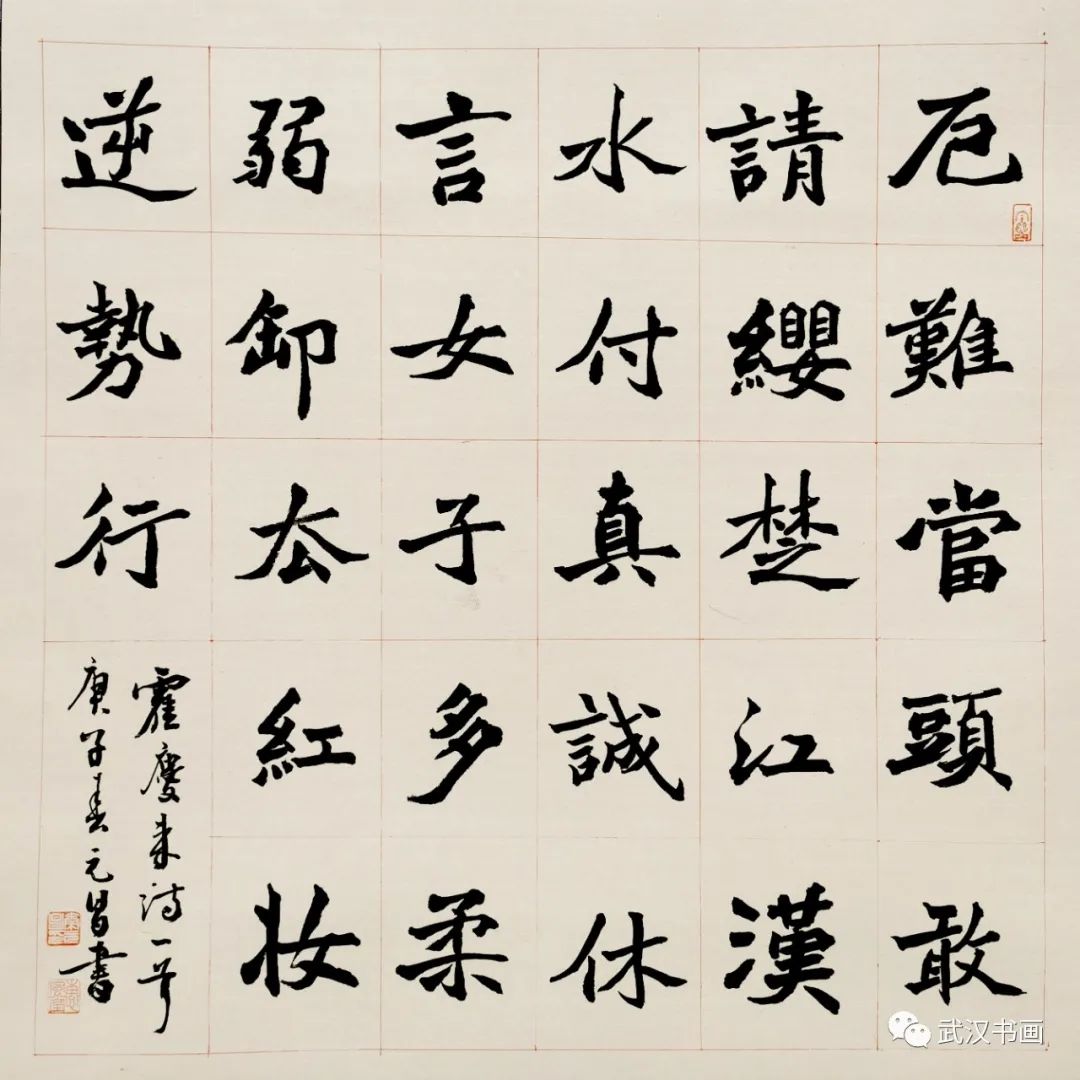 厄難當頭敢
請纓楚江漢
水付真誠休
言女子多柔
弱卸厺紅妝
逆勢行
霍慶來詩一首
庚子春元昌書
武汉书画